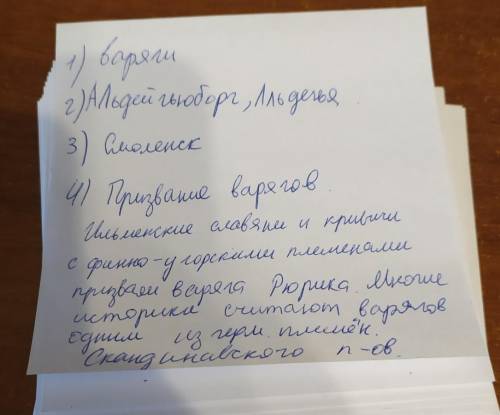 1) Варяги
2) Альдейгьюборг, Альдегья
3) Смоленск
4) Призвание варягов.
Ильменские славяни и кривичи
с финно-угорскими племенами
призвали варяга Рюрика. Многие
историки считают варягов
одним из герм. племён.
Скандинавского п-ов.